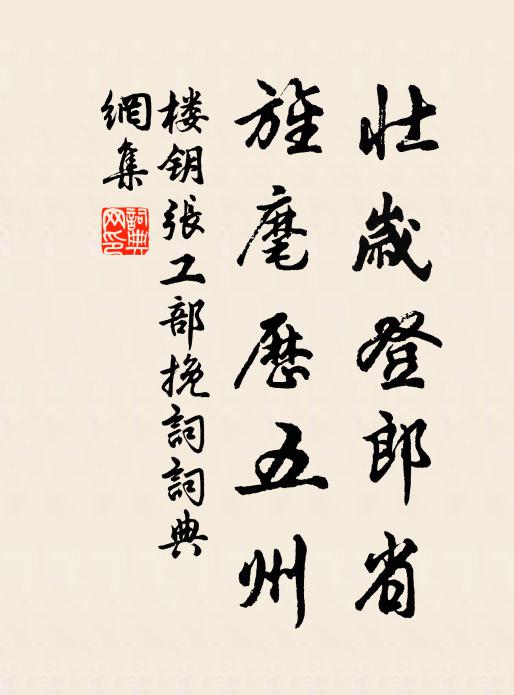 壮歲登郎省
旌麾歷五州
楼钥張工部挽詞詞典
網集
詞典網印